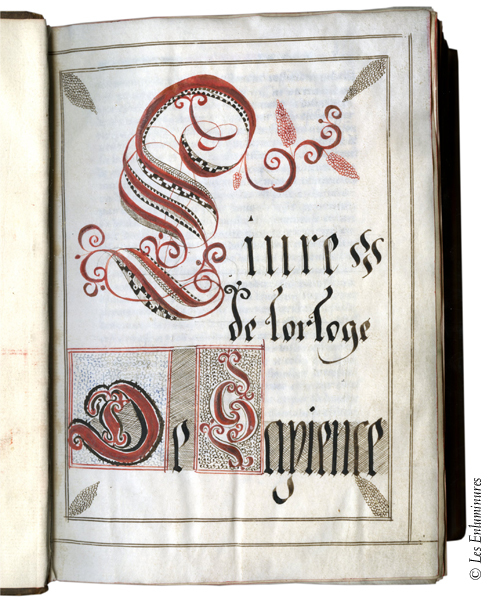 Liure
de lorloge
De Sapience
© Les Enluminures